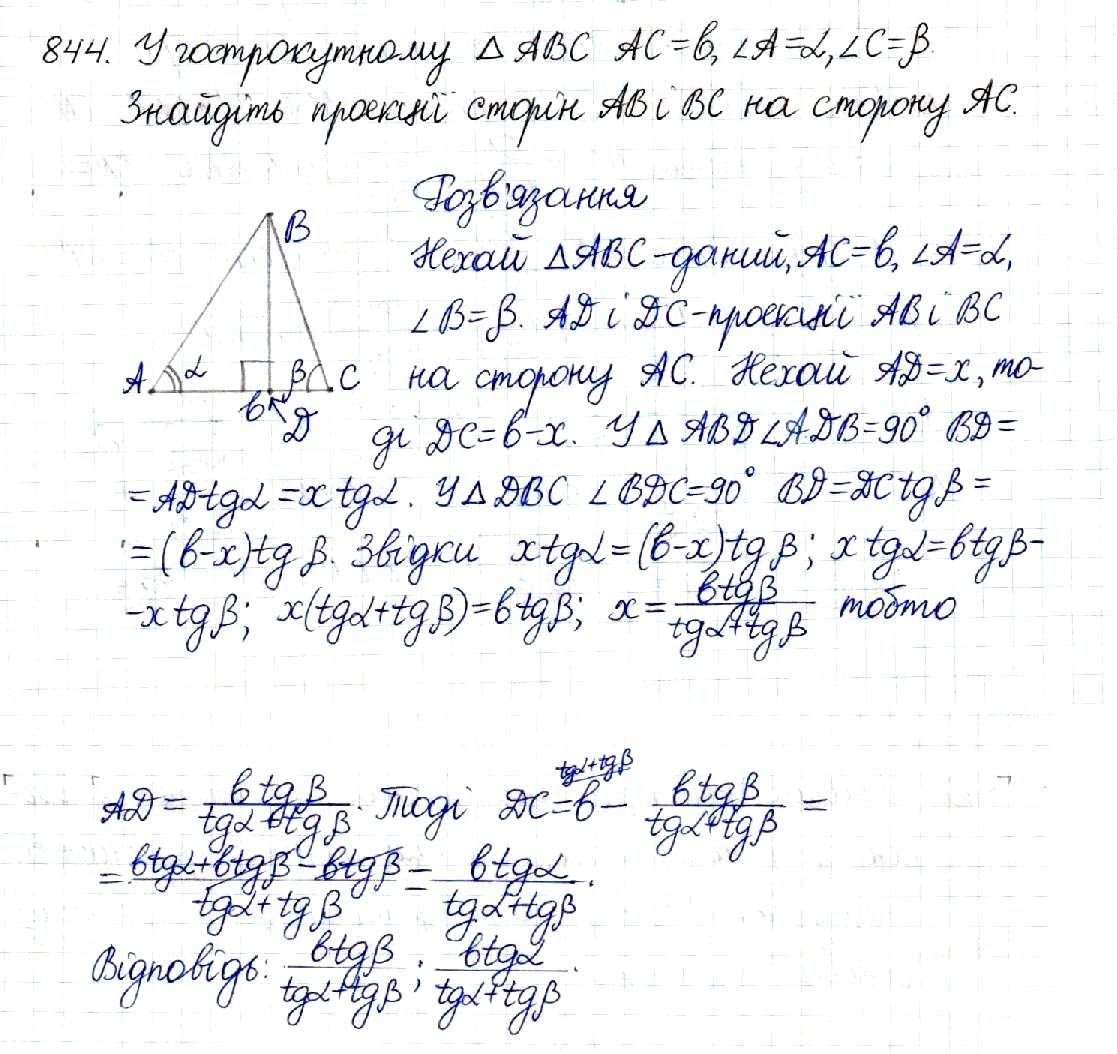 844. У гострокутному △ ABC AC = b, ∠A = α, ∠C = β
Знайдіть проекції сторін AB і BC на сторону AC.
Розв'язання
Нехай △ABC - даний, AC = b, ∠A = α,
∠B = β. AD і DC - проекції AB і BC
на сторону AC. Нехай AD = x, то-
ді DC = b - x. У △ ABD ∠ADB = 90° BD =
= AD tg α = x tg α. У △ DBC ∠ BDC = 90° BD = DC tg β =
= (b - x) tg β. Звідки x tg α = (b - x) tg β; x tg α = b tg β -
- x tg β; x(tg α + tg β) = b tg β; x = b tg β / (tg α + tg β) тобто
B
A α β C
b D
AD = b tg β / (tg α + tg β). Тоді DC = b^(tg α + tg β) - b tg β / (tg α + tg β) =
= (b tg α + b tg β - b tg β) / (tg α + tg β) = b tg α / (tg α + tg β).
Відповідь: b tg β / (tg α + tg β); b tg α / (tg α + tg β).